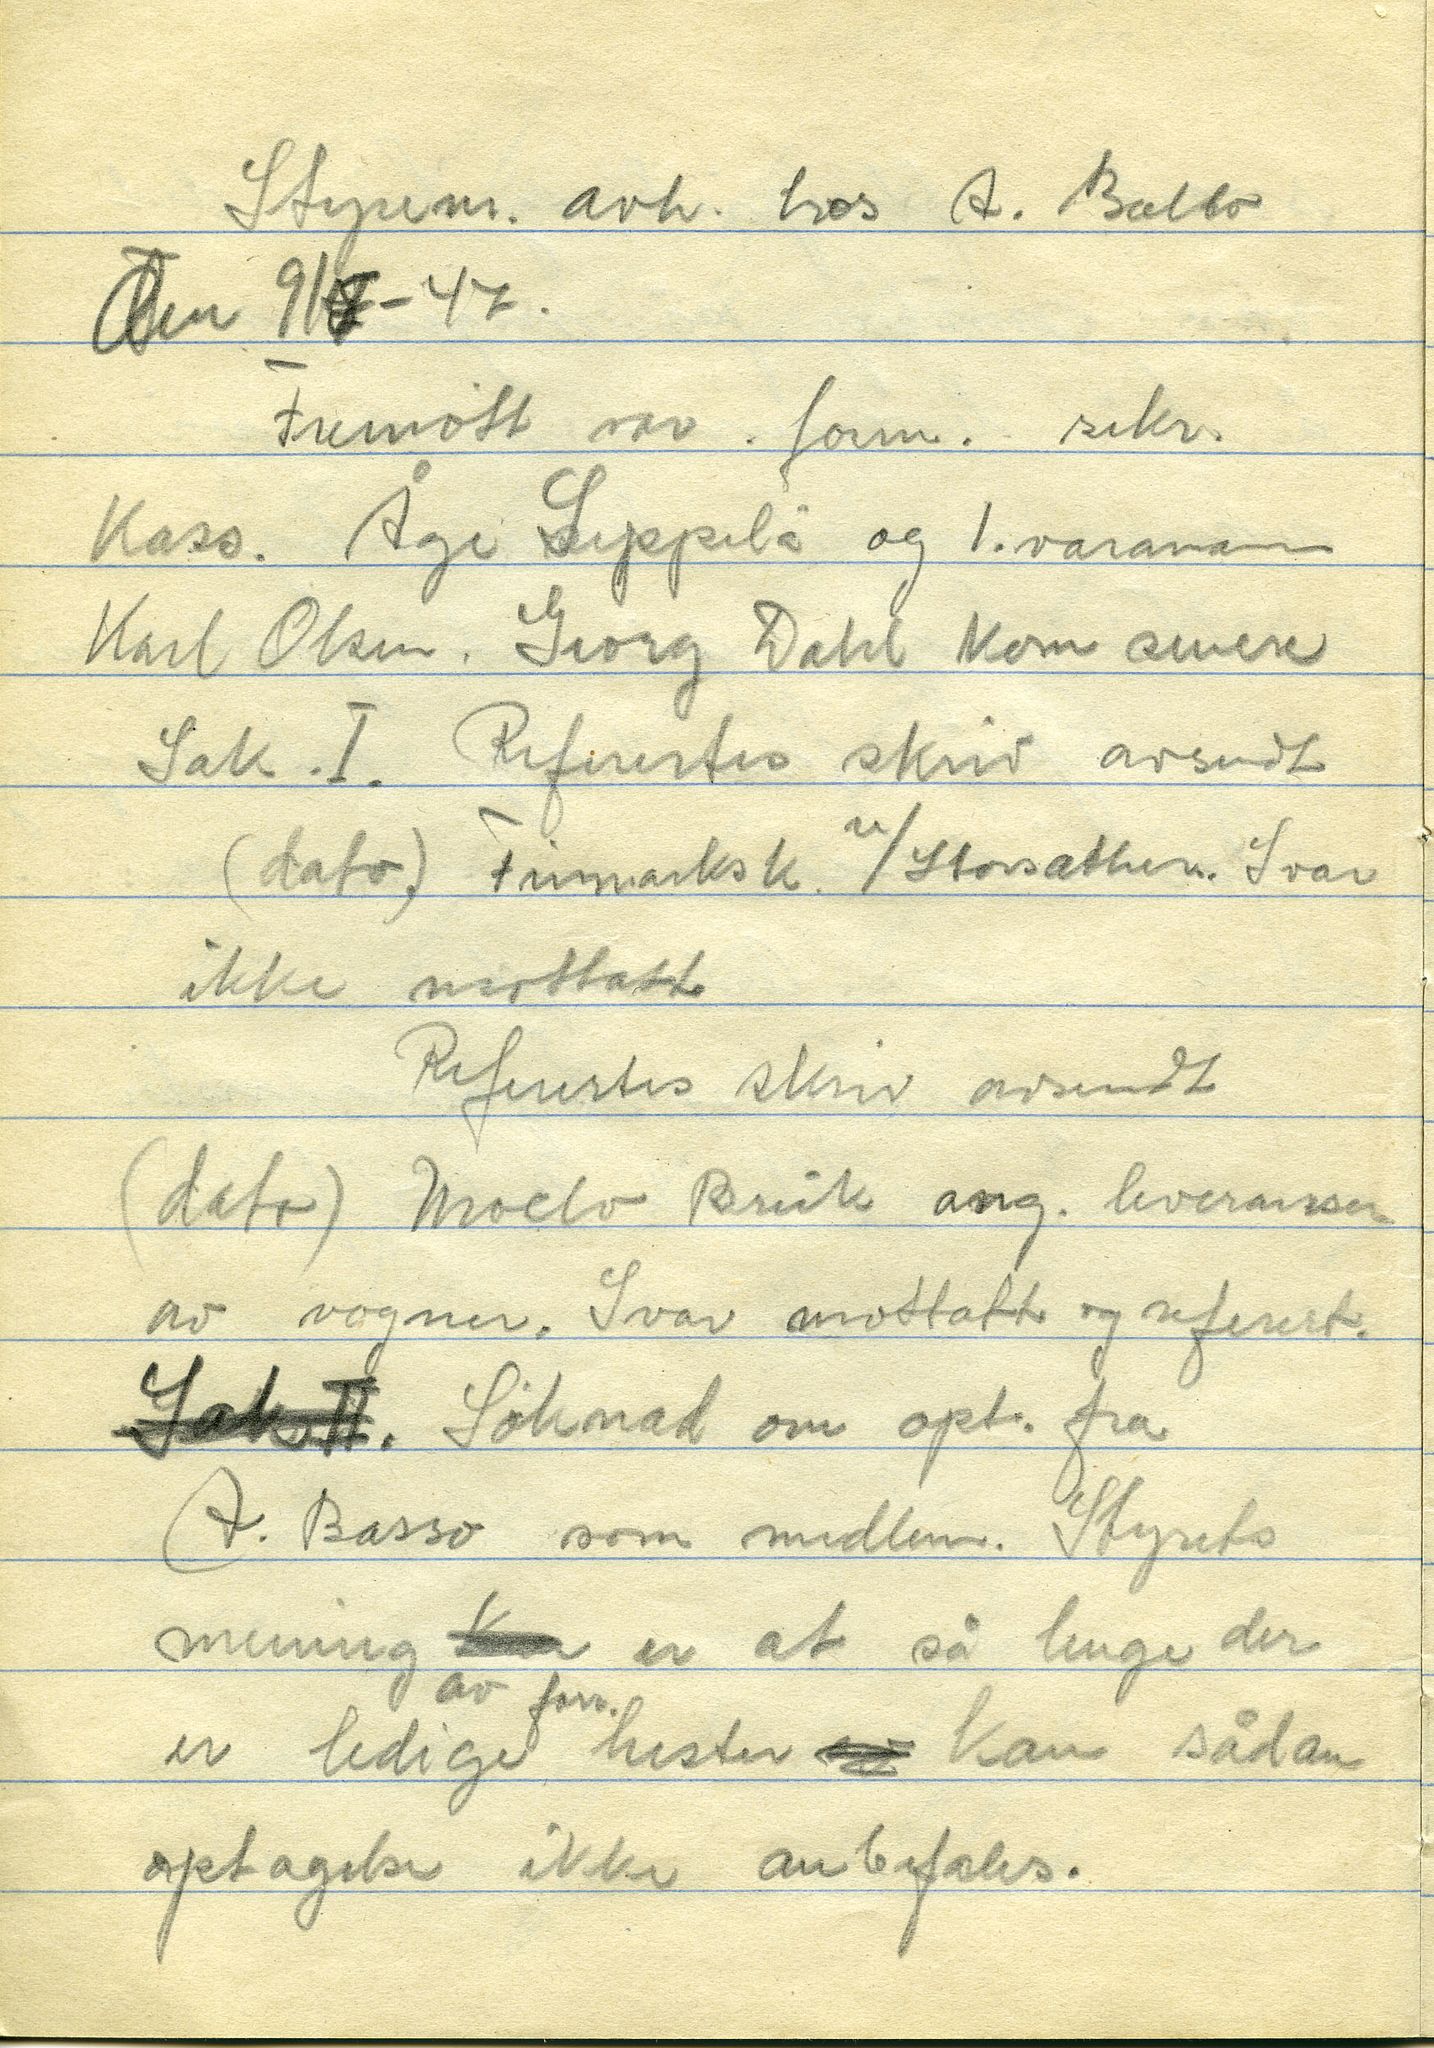 Styrem. avh. hos A. Balto
Den 9/ - 47.
Fremött var form. sekr.
Kass. Åge Seppelä og 1. varamann
Karl Olsen. Georg Dahl kom senere
Sak I. Refertes skriv avsendt
(dato) Finnmarksk. v/Storsæther. Svar
ikke mottatt
Refertes skriv avsendt
(dato) Moelv Bruk ang. leveransen
av vogner. Svar mottatt og referert.
Sak II. Söknad om opt. fra
A. Basso som medlem. Styrets
mening er at så lenge der
er ledige av forr. hester kan sådan
optagelse ikke anbefales.